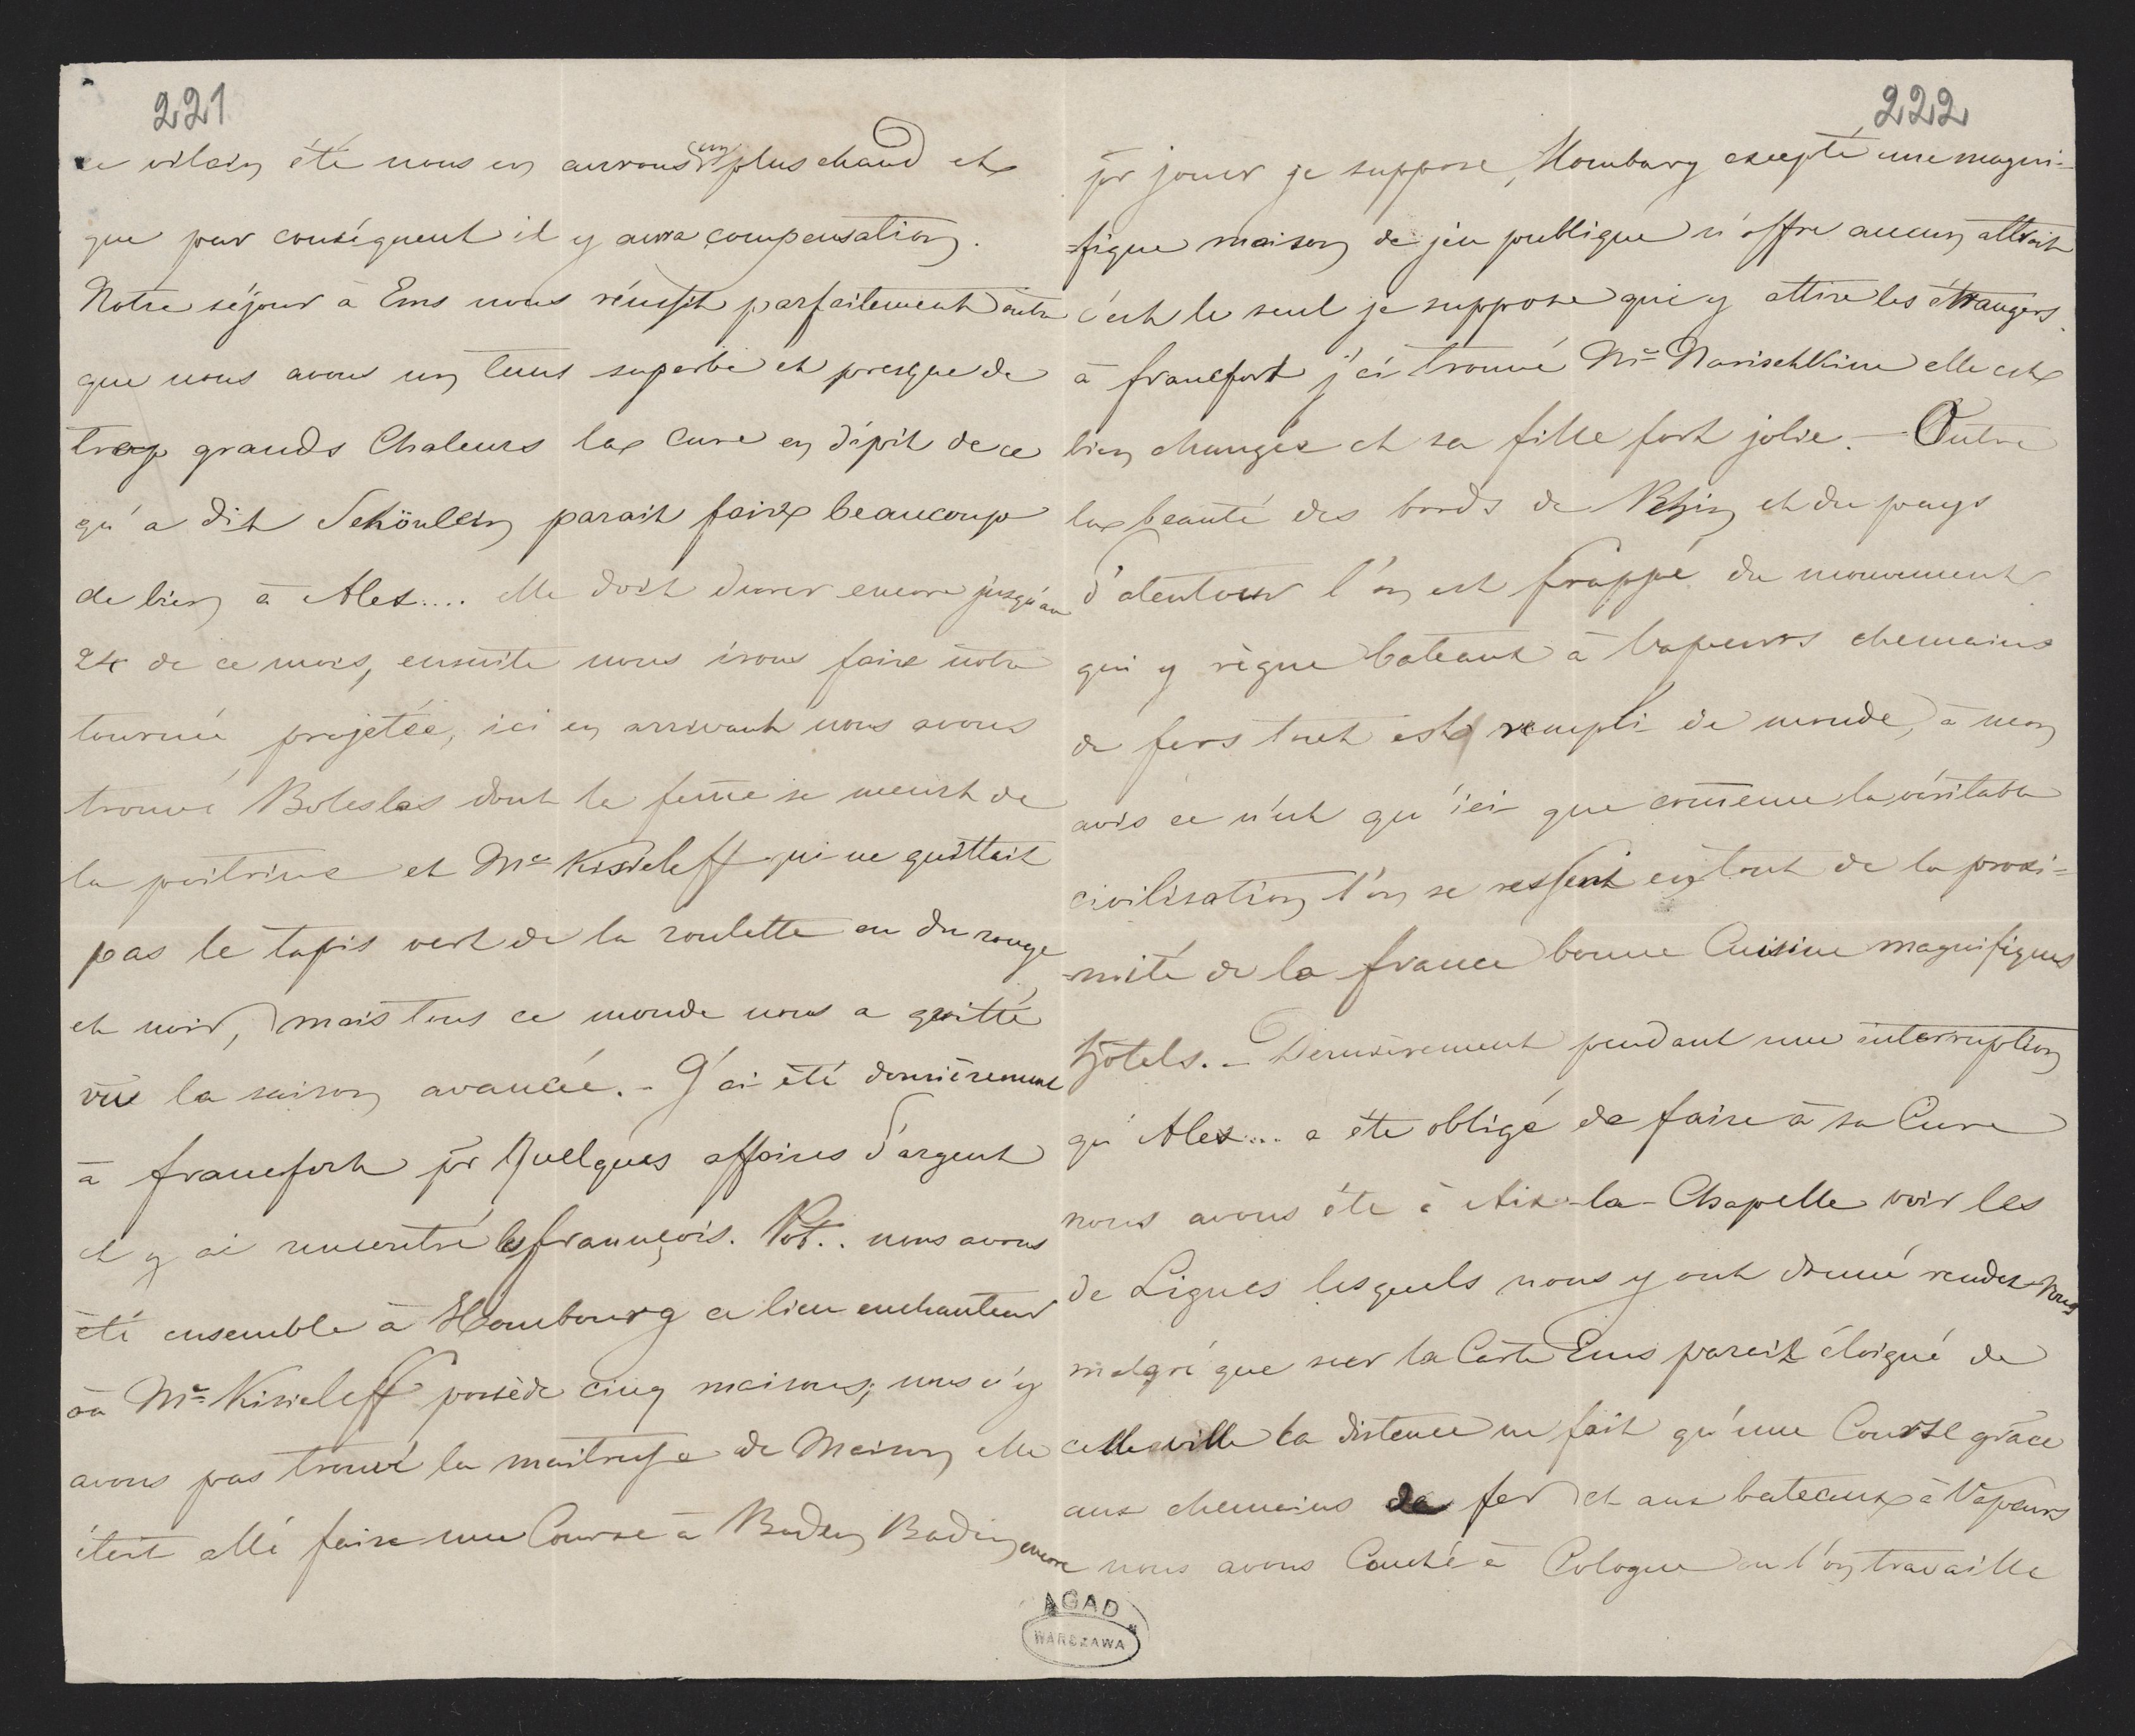 221
ce vilain été nous en aurons un plus chaud et
que par conséquent il y aura compensation.
Notre séjour à Ems nous réussit parfaitement outre
que nous avons un tems superbe et presque de
trop grands Chaleurs la Cure en dépit de ce
qu'a dit Schönlein parait faire beaucoup
de bien à Alex.... elle doit durer encore jusqu'au
24 de ce mois, ensuite nous irons faire notre
tournée projetée, ici en arrivant nous avons
trouvé Boleslas dont la feme se meurt de
la poitrine et Me Kisieleff qui ne quittait
pas le tapis vert de la roulette ou du rouge
et noir, mais tous ce monde nous a quitté
vue la saison avancée. - J'ai été dernièrement
à francfort pr Quelques affaires d'argent
et y ai rencontré les françois. Pot.. nous avons
été ensemble à Hombourg ce lieu enchanteur
où Me Kisieleff possède cinq maisons; nous n'y
avons pas trouvé la maitresse de Maison elle
étoit allé faire une Course à Baden Baden encore
222
pr jouer je suppose, Hombourg excepté une magni-
-fique maison de jeu publique n'offre aucun attrait
c'est le seul je suppose qui y attire les étrangers.
à francfort j'ai trouvé Me Narischkine elle est
bien changée et sa fille fort jolie. - Outre
la beauté des bords de Rhin et du pays
d'alentour l'on est frappé du mouvement
qui y règne bateaux à Vapeurs chemains
de fers tout est rempli de monde, à mon
avis ce n'est qu'ici que comence la véritable
civilisation l'on se ressent en tout de la proxi=
-mité de la france bonne Cuisine magnifiques
hôtels. - Dernièrement pendant une interruption
qu'Alex... a été obligé de faire à sa Cure
nous avons été à Aix-la-Chapelle voir les
de Lignes lesquels nous y ont donné rendez-vous
malgré que sur la Carte Ems parait éloigné de
cette ville la distence ne fait qu'une Course grâce
aux chemains de fer et aux bateaux à Vapeurs
nous avons Couché à Cologne ou l'on travaille
AGAD
WARSZAWA